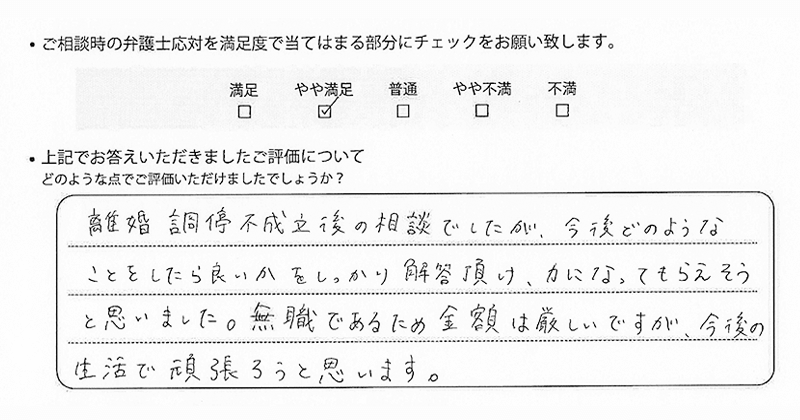 ・ご相談時の弁護士応対を満足度で当てはまる部分にチェックをお願い致します。
満足 やや満足 普通 やや不満 不満
□ ☑ □ □ □
・上記でお答えいただきましたご評価について
どのような点でご評価いただけましたでしょうか？
離婚調停不成立後の相談でしたが、今後どのような
ことをしたら良いかをしっかり解答頂け、力になってもらえそう
と思いました。無職であるため金額は厳しいですが、今後の
生活で頑張ろうと思います。